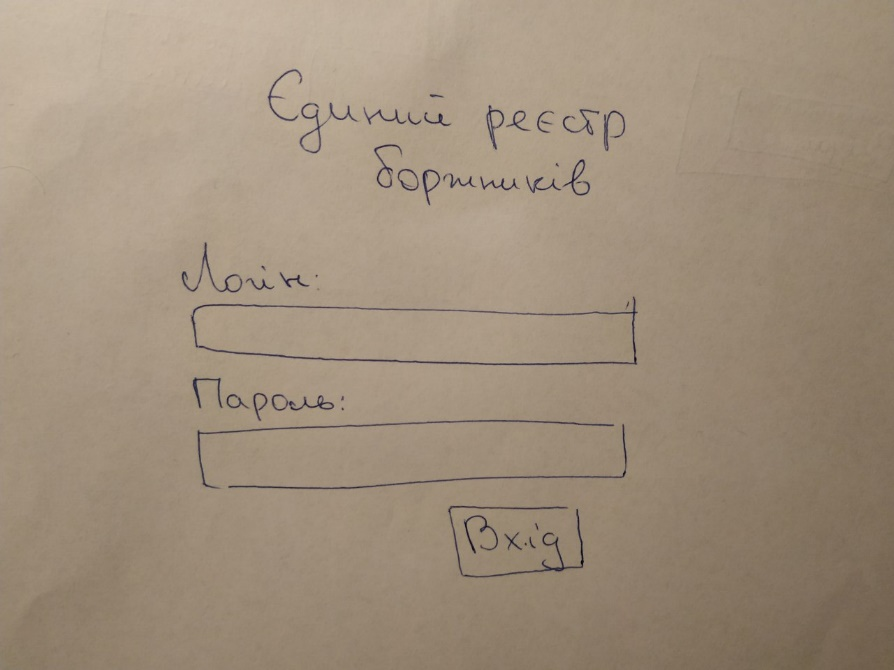 Єдиний реєстр
боржників
Логін:
Пароль:
Вхід